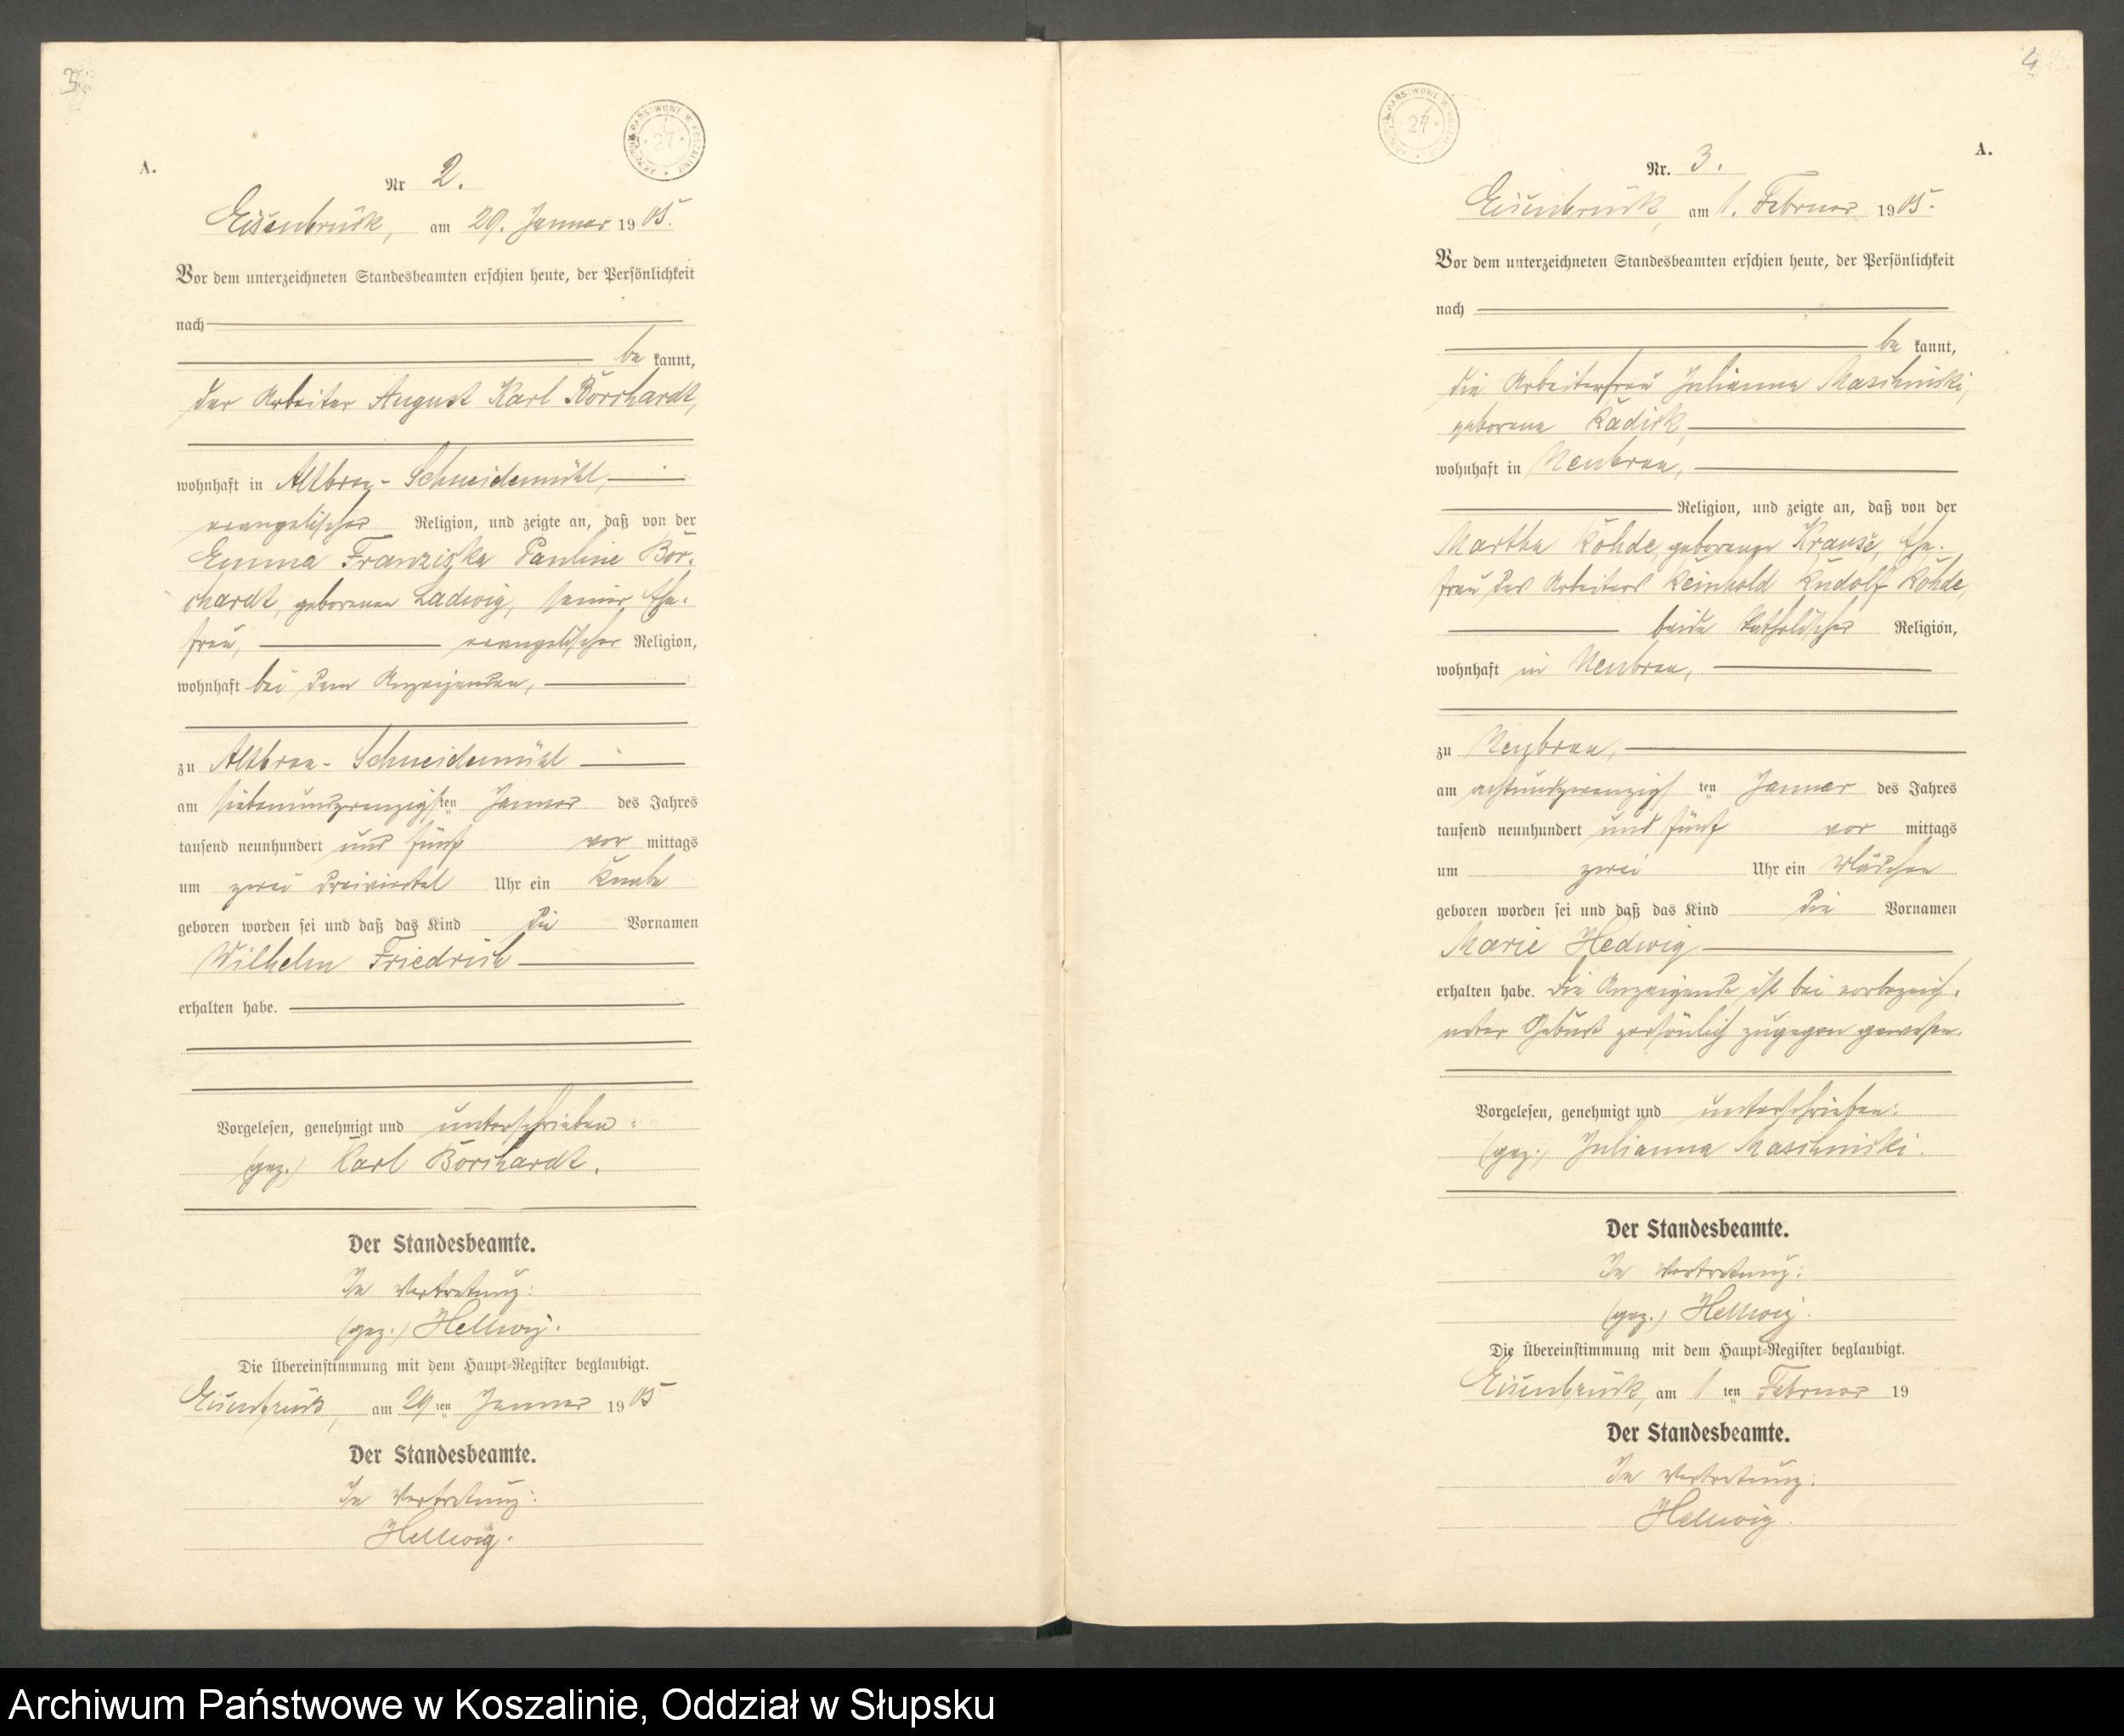 3
A.
Nr 2.
Eisenbrück, am 29. Januar 1905.
Vor dem unterzeichneten Standesbeamten erschien heute, der Persönlichkeit
nach
be kannt,
der Arbeiter August Karl Borchardt,
wohnhaft in Altbraa-Schneidemühl,
evangelischer Religion, und zeigte an, daß von der
Emma Franziska Pauline Bor-
chardt, geborenen Ladwig, seiner Ehe-
frau, evangelischer Religion,
wohnhaft bei dem Anzeigenden,
zu Altbraa-Schneidemühl
am siebenundzwanzigsten Januar des Jahres
tausend neunhundert und fünf vor mittags
um zwei dreiviertel Uhr ein Knabe
geboren worden sei und daß das Kind die Vornamen
Wilhelm Friedrich
erhalten habe.
Vorgelesen, genehmigt und unterschrieben:
(gez.) Karl Borchardt.
Der Standesbeamte.
In Vertretung:
(gez.) Hellwig.
Die Übereinstimmung mit dem Haupt-Register beglaubigt.
Eisenbrück, am 29 ten Januar 1905
Der Standesbeamte.
In Vertretung:
Hellwig.
4
A.
Nr. 3.
Eisenbrück, am 1. Februar 1905.
Vor dem unterzeichneten Standesbeamten erschien heute, der Persönlichkeit
nach
be kannt,
die Arbeiterfrau Julianna Maschinski,
geborene Radick,
wohnhaft in Neubraa,
Religion, und zeigte an, daß von der
Martha Rohde, geborenen Krause, Ehe-
frau des Arbeiters Reinhold Rudolf Rohde,
beide katholischer Religion,
wohnhaft in Neubraa,
zu Neubraa,
am achtundzwanzigs ten Januar des Jahres
tausend neunhundert und fünf vor mittags
um zwei Uhr ein Mädchen
geboren worden sei und daß das Kind die Vornamen
Marie Hedwig
erhalten habe. Die Anzeigende ist bei vorbezeich-
neter Geburt persönlich zugegen gewesen.
Vorgelesen, genehmigt und unterschrieben:
(gez.) Julianna Maschinski.
Der Standesbeamte.
In Vertretung:
(gez.) Hellwig.
Die Übereinstimmung mit dem Haupt-Register beglaubigt.
Eisenbrück, am 1 ten Februar 19
Der Standesbeamte.
In Vertretung:
Hellwig.
Archiwum Państwowe w Koszalinie, Oddział w Słupsku